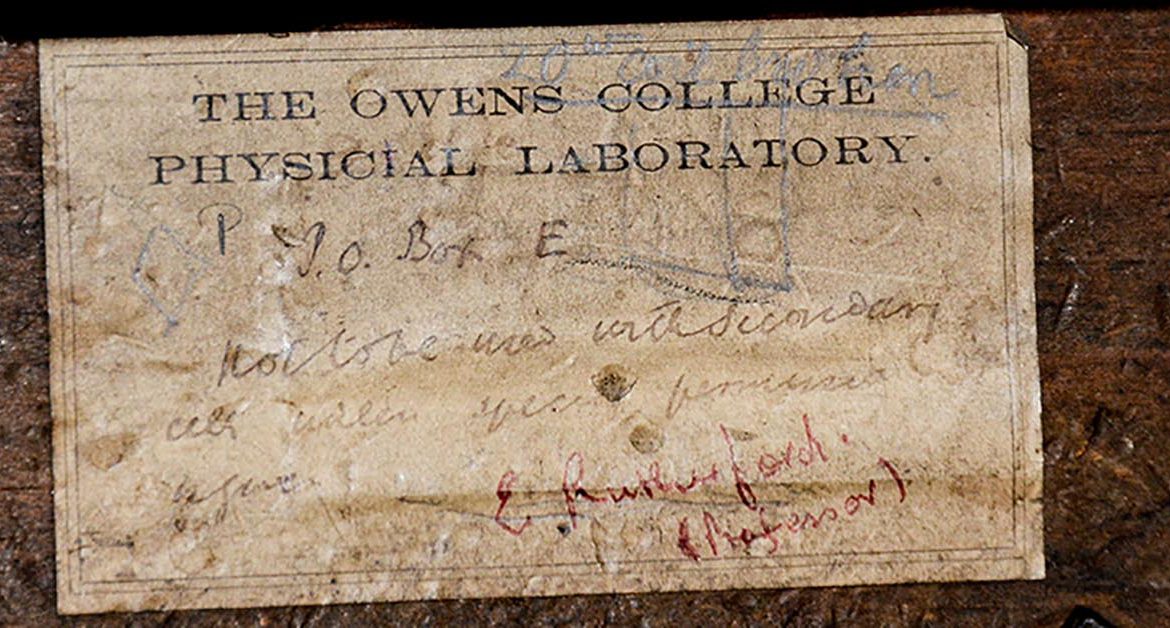 20 ohm coil broken
THE OWENS COLLEGE
PHYSICIAL LABORATORY.
P P.O. Box E
Not to be used with secondary
cells unless special permission
is given
E Rutherford.
(Professor)